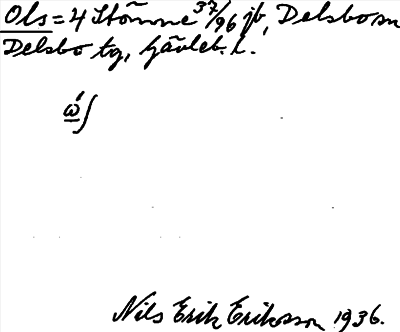 Ols = 4 Stömne 37/96 jb, Delsbo sn
Delsbo tg, Gävleb. l.
ẃʃ
Nils Erik Eriksson 1936.